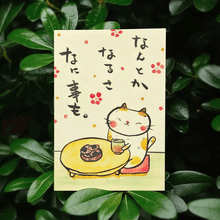 なんとか
なるさ
なに事も。